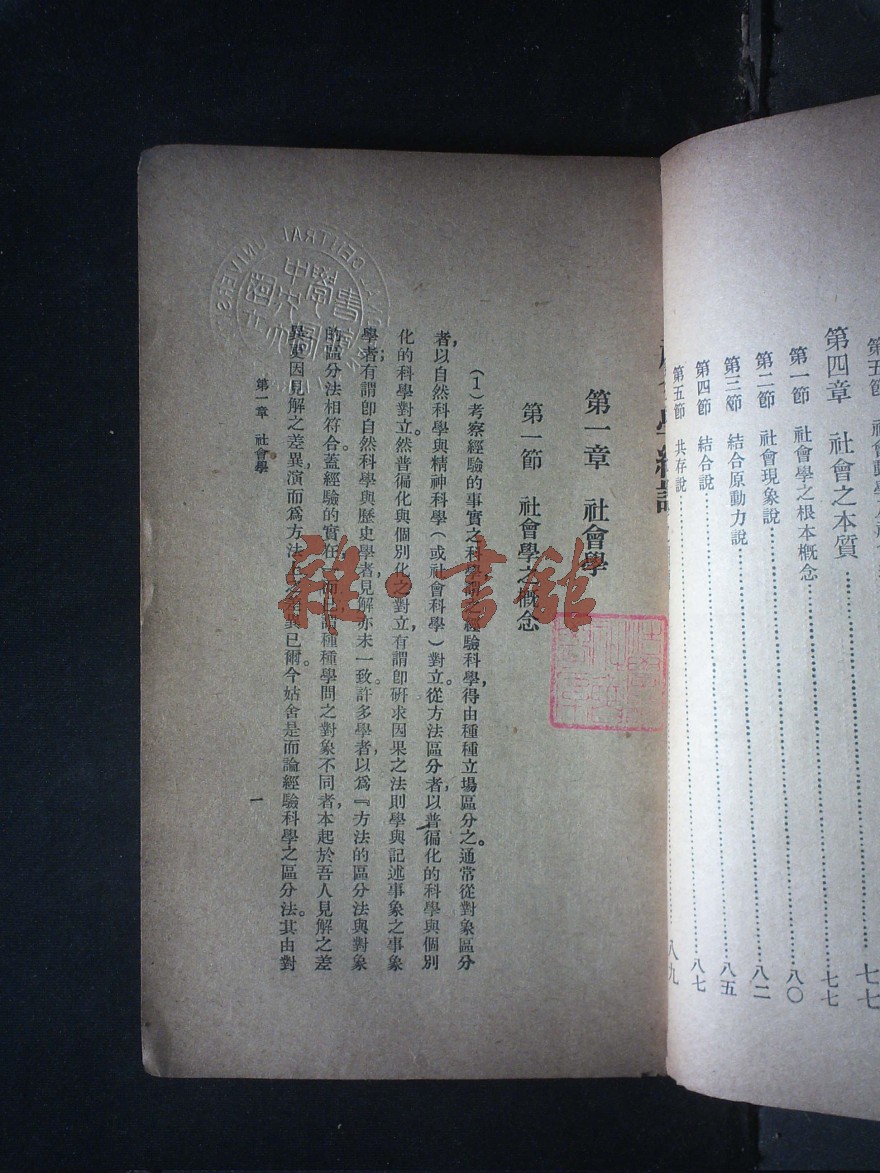 第五節
第四章　社會之本質……七七
第一節　社會學之根本概念……八〇
第二節　社會現象說……八二
第三節　結合原動力說……八五
第四節　結合說……八七
第五節　共存說……八九
第一章　社會學
第一節　社會學之概念
(1)考察經驗的事實之科學經驗科學，得由種種立場區分之。通常從對象區分
者，以自然科學與精神科學(或社會科學)對立。從方法區分者，以普徧化的科學與個別
化的科學對立。然普徧化與個別化之對立，有謂卽研求因果之法則學與記述事象之事象
學者；有謂卽自然科學與歷史學者，見解亦未一致。許多學者以爲『方法的區分法與對象
的區分法相符合。蓋經驗的實在，一而已，種種學問之對象不同者，本起於吾人見解之差
異，更因見解之差異，演而爲方法上之差異已爾。今姑舍是而論經驗科學之區分法。其由對
第一章　社會學
一
CENTRAL UNIVERS
雜·書館